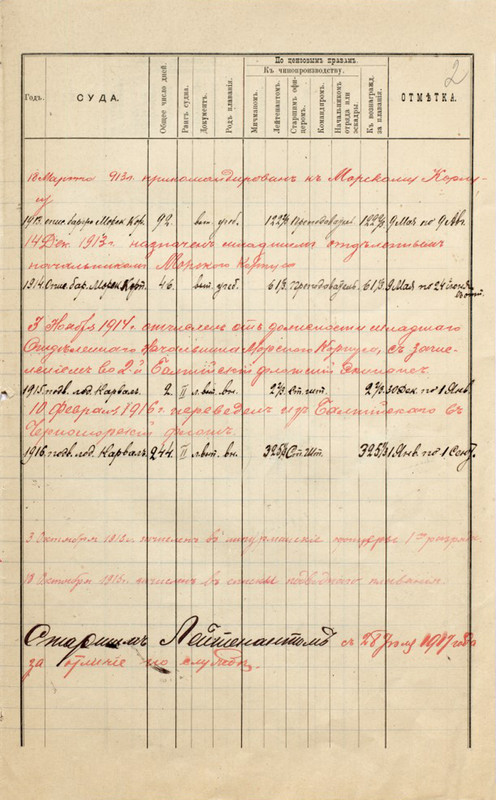 2
По цензовымъ правиламъ.
Къ чинопроизводству.
Годъ. СУДА. Общее число дней. Рангъ судна. Документъ. Родъ плаванія. Мичманомъ. Лейтенантомъ. Старшимъ офицеромъ. Командиромъ. Начальникомъ отряда или эскадры. Къ вознагражд. за плаваніе. ОТМѢТКА.
18 Марта 913 г. прикомандированъ къ Морскому Корпу-
су
1913. Морск. Кор. 92. учеб. 9 Мая по 9 Ав.
14 Дек. 1913 г. назначенъ младшимъ отдѣленнымъ
начальникомъ Морского Корпуса
1914. Морск. Корп. 46. учеб. 61⅓ 61⅓ 9 Мая по 24
3 Ноября 1914 г. отчисленъ отъ должности младшаго
Отдѣленнаго Начальника Морского Корпуса, съ зачис-
леніемъ во 2й Балтійскій флотскій Экипажъ
1915. подв. лод. Нарвалъ. 2 II вн. 2⅔ Ст. шт. 2⅔ 30 Дек. по 1 Янв.
10 февраля 1916 г. переведенъ изъ Балтійского въ
Черноморскій флотъ.
1916. подв. лод. Нарвалъ. 244. II вн. 325⅓ Ст. Шт. 325⅓ 1 Янв. по 1 Сент.
3 Октября 1915 г. зачисленъ въ штурманскіе офицеры 1го разряда.
10 Октября 1915 г. зачисленъ въ списки подводнаго плаванія.
Старшимъ Лейтенантомъ съ 28 Іюля 1917 года
за отличіе по службѣ.